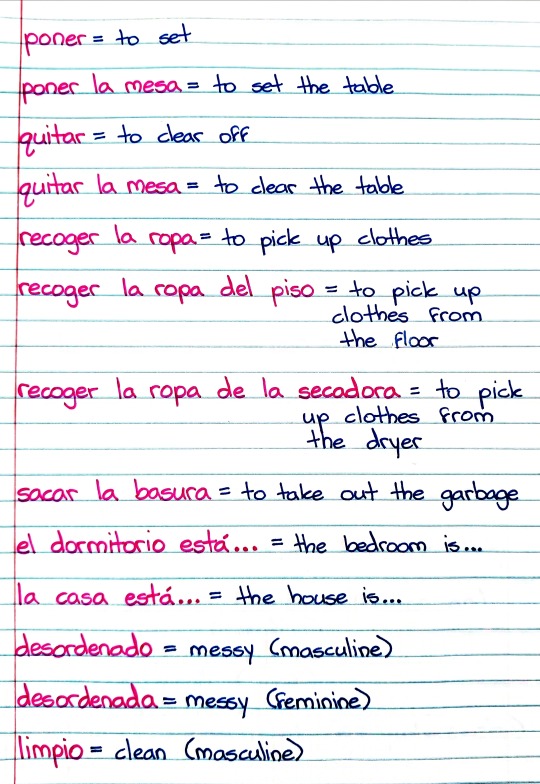 poner = to set
poner la mesa = to set the table
quitar = to clear off
quitar la mesa = to clear the table
recoger la ropa = to pick up clothes
recoger la ropa del piso = to pick up
clothes from
the floor
recoger la ropa de la secadora = to pick
up clothes from
the dryer
sacar la basura = to take out the garbage
el dormitorio está... = the bedroom is...
la casa está... = the house is...
desordenado = messy (masculine)
desordenada = messy (feminine)
limpio = clean (masculine)